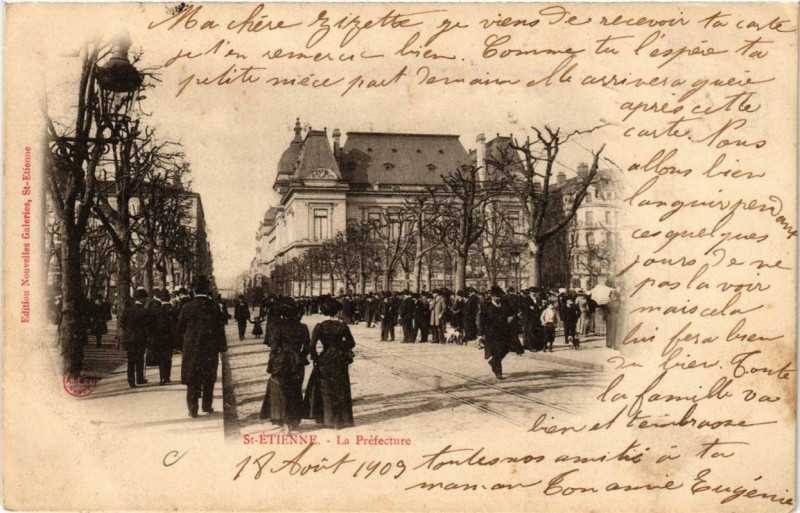 Ma chére Zizette je viens de recevoir ta carte
je t'en remercie bien. Comme tu l'espére ta
petite niéce part demain elle arrivera guére
après cette
carte. Nous
allons bien
languir pendant
ces quelques
jours de ne
pas la voir
mais cela
lui fera bien
du bien. Toute
la famille va
bien et t'embrasse
18 Août 1903 toutes nos amitié à ta
maman Ton amie Eugénie
St-ÉTIENNE. - La Préfecture
Edition Nouvelles Galeries, St-Etienne